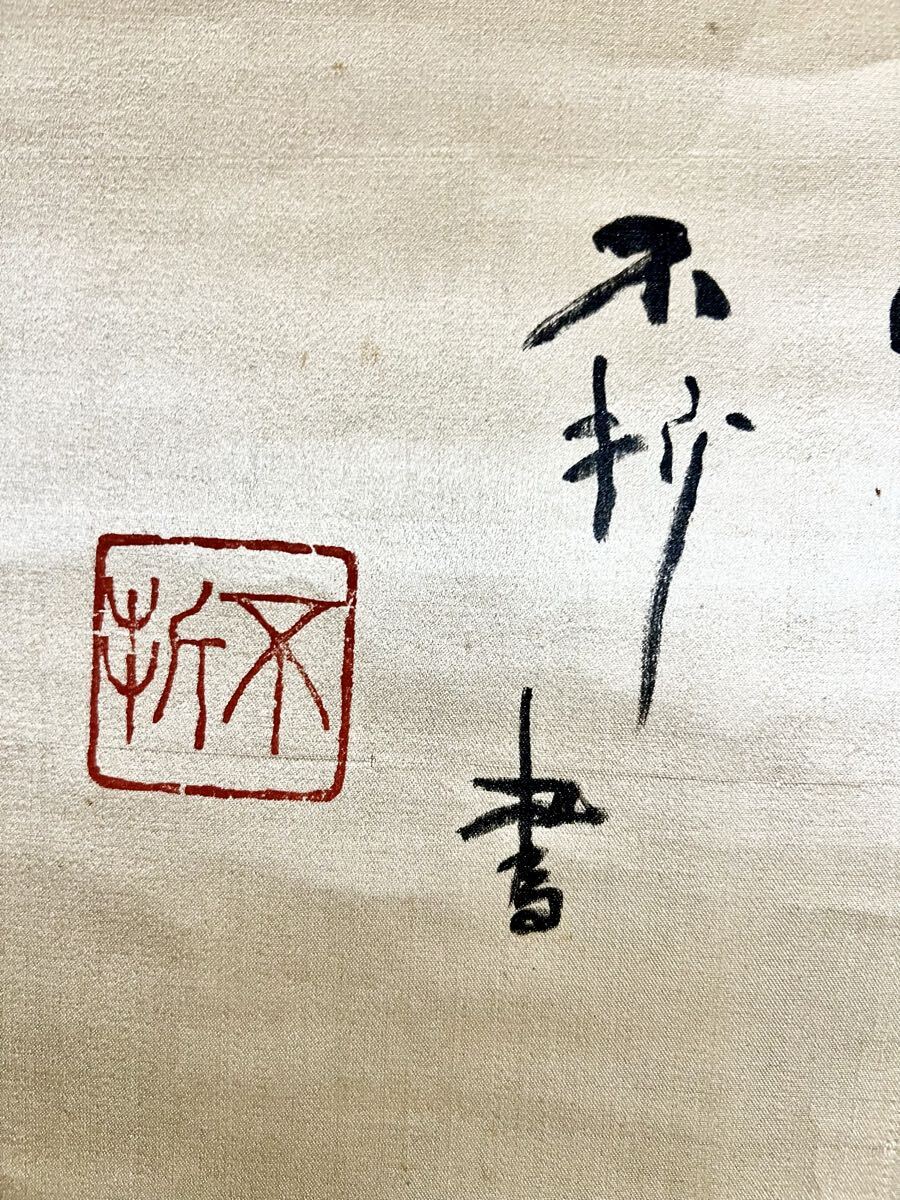 不折書
不折